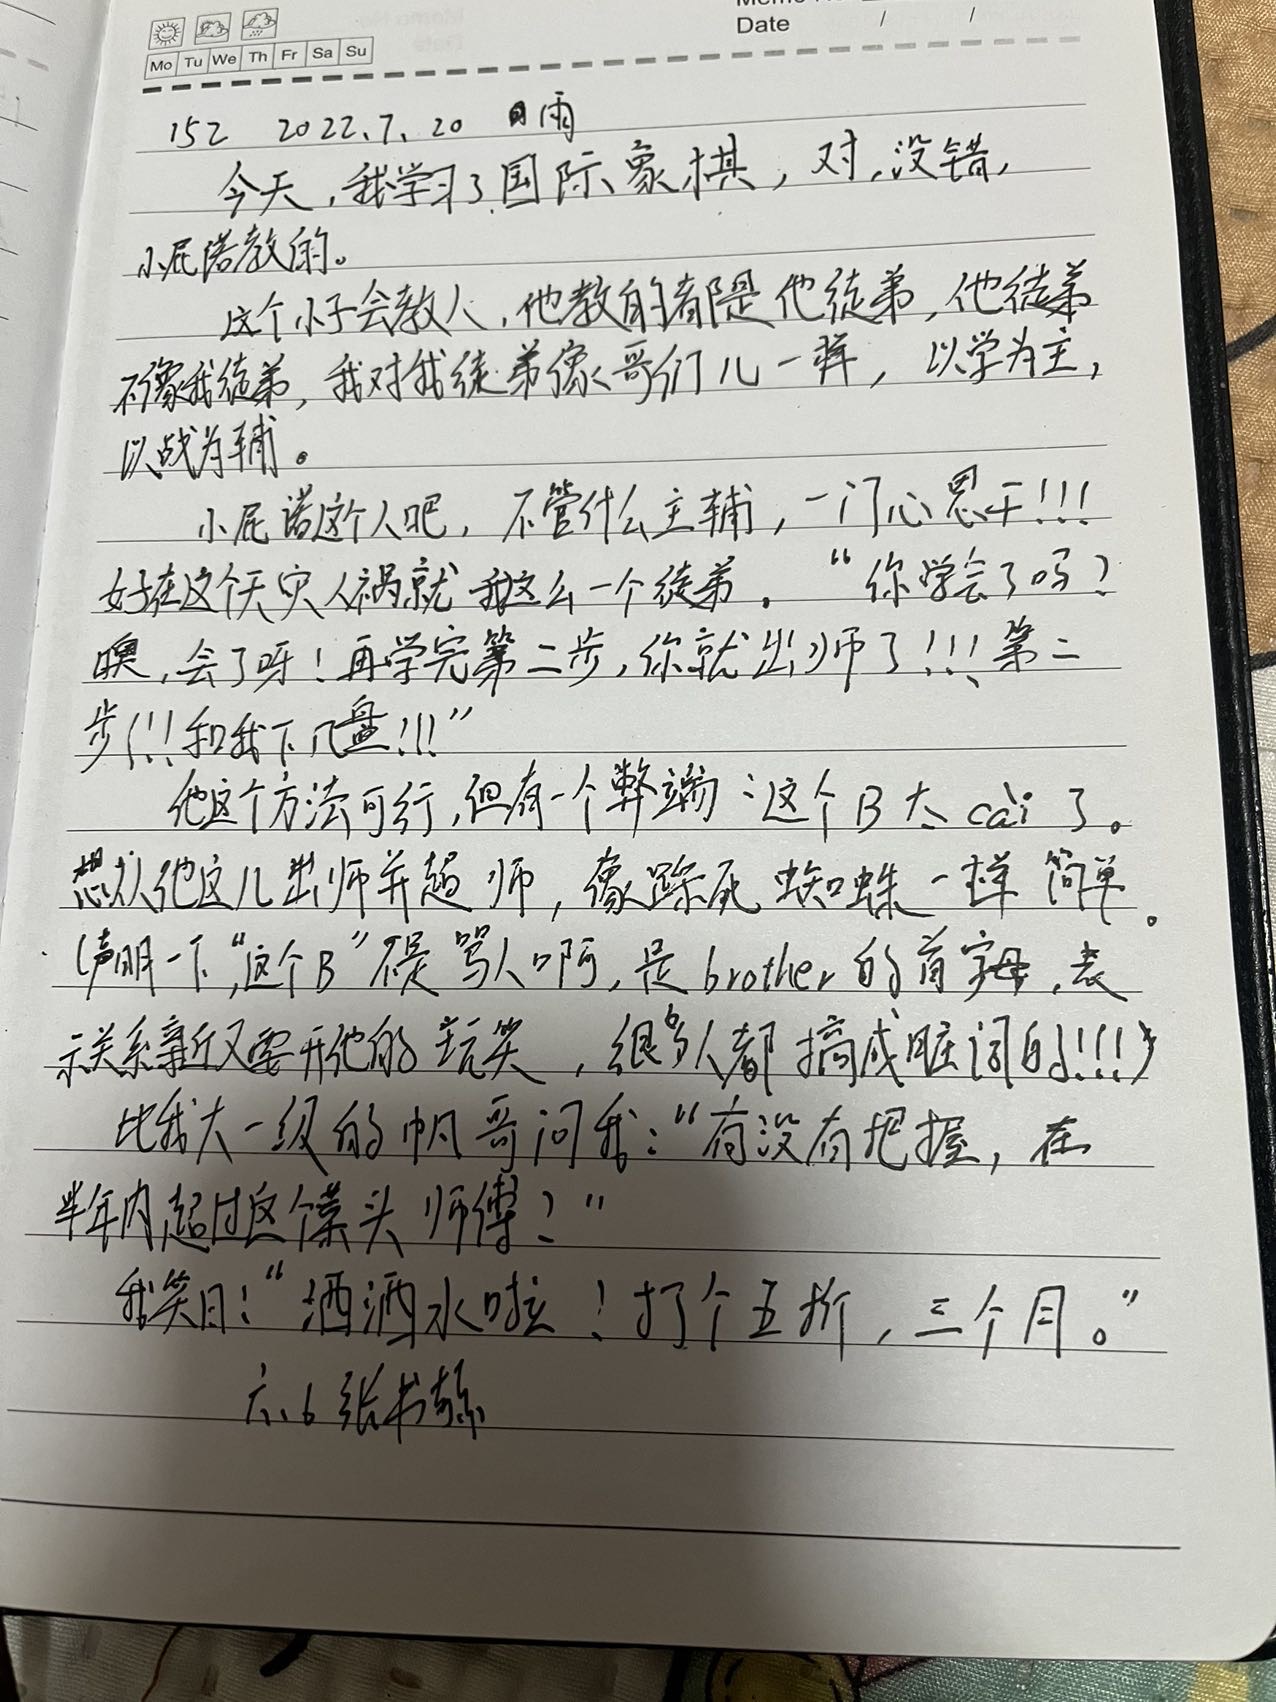 Memo No
Date / /
Mo Tu We Th Fr Sa Su
152 2022.7.20 雨
今天,我学习了国际象棋,对,没错,
小屁诺教的。
这个小子会教人,他教的都是他徒弟,他徒弟
不像我徒弟,我对我徒弟像哥们儿一样,以学为主,
以战为辅。
小屁诺这个人吧,不管什么主辅,一门心思干!!!
好在这个天灾人祸就我这么一个徒弟。“你学会了吗?
噢,会了呀!再学完第二步,你就出师了!!!第二
步!!!和我下几盘!!!”
他这个方法可行,但有一个弊端:这个B太cài了。
想从他这儿出师并超师,像踩死蜘蛛一样简单。
(声明一下,“这个B”不是骂人啊,是brother的首字母,表
示关系亲近又要开他的玩笑,很多人都搞成脏词的!!!)
比我大一级的帆哥问我:“有没有把握,在
半年内超过这个菜头师傅?”
我笑曰:“洒洒水啦!打个五折,三个月。”
六.6张书